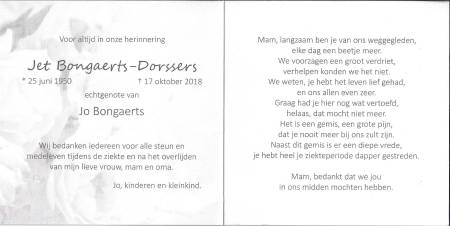 Voor altijd in onze herinnering
Jet Bongaerts-Dorssers
* 25 juni 1950 † 17 oktober 2018
echtgenote van
Jo Bongaerts
Wij bedanken iedereen voor alle steun en
medeleven tijdens de ziekte en na het overlijden
van mijn lieve vrouw, mam en oma.
Jo, kinderen en kleinkind.
Mam, langzaam ben je van ons weggegleden,
elke dag een beetje meer.
We voorzagen een groot verdriet,
verhelpen konden we het niet.
We weten, je hebt het leven lief gehad,
en ons allen even zeer.
Graag had je hier nog wat vertoefd,
helaas, dat mocht niet meer.
Het is een gemis, een grote pijn,
dat je nooit meer bij ons zult zijn.
Naast dit gemis is er een diepe vrede,
je hebt heel je ziekteperiode dapper gestreden.
Mam, bedankt dat we jou
in ons midden mochten hebben.